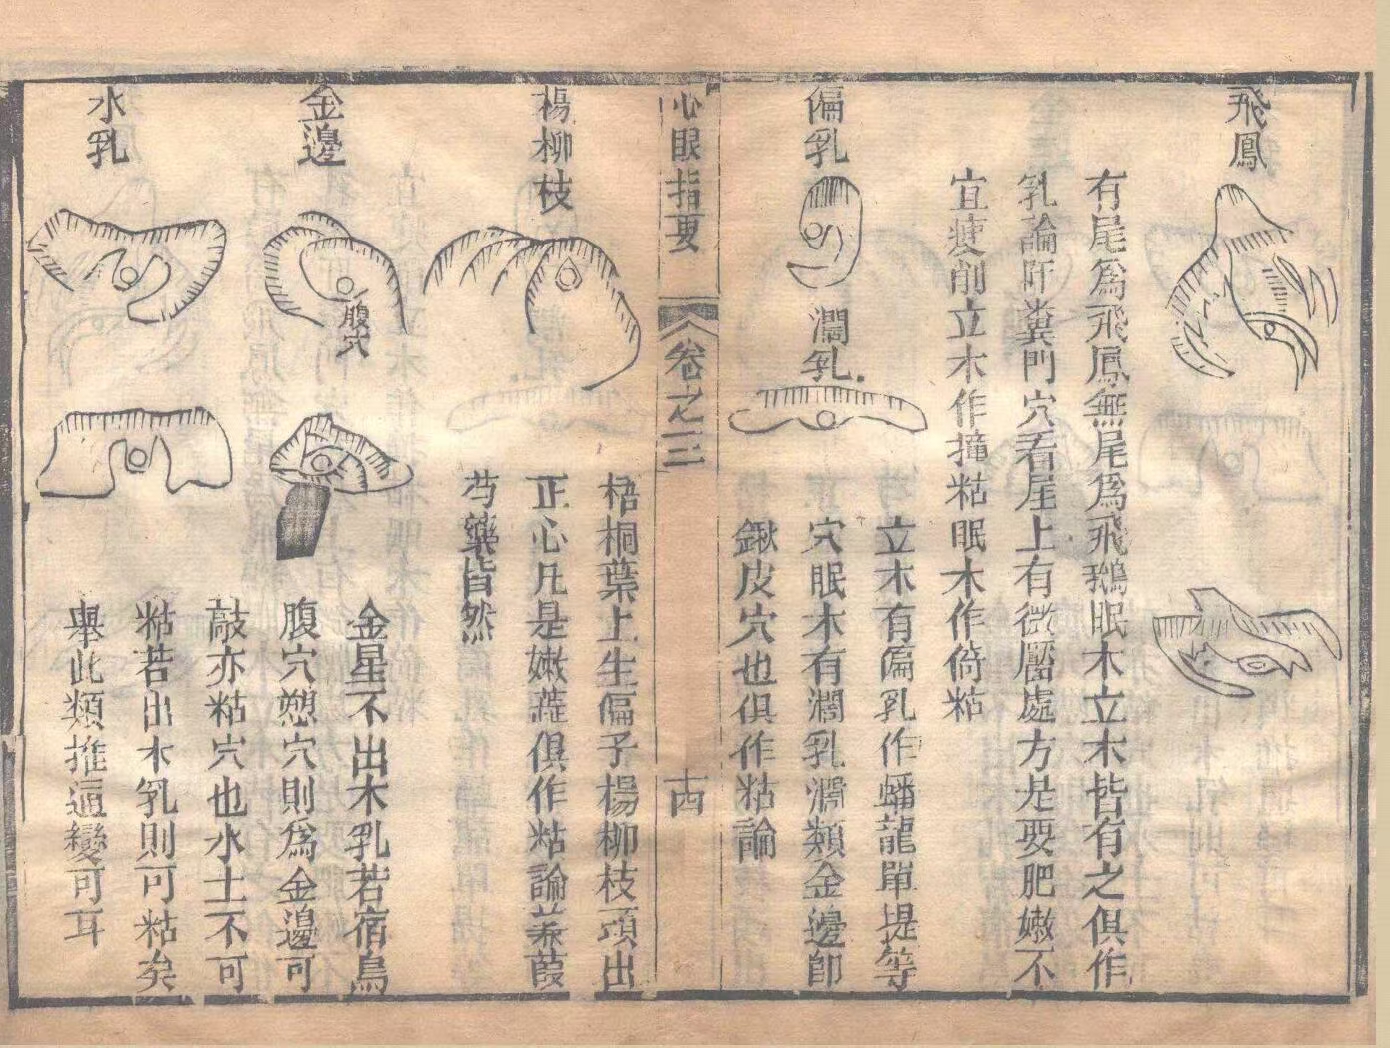 飛鳳
有尾為飛鳳無尾為飛鵝眠木立木皆有之俱作
乳論阡糞門穴看尾上有微壓處方是要肥嫩不
宜瘦削立木作撞粘眠木作倚粘
偏乳
濶乳
立木有偏乳作蟠龍單提等
穴眠木有濶乳濶類金邊即
鍬皮穴也俱作粘論
心眼指要
卷之三
十四
楊柳枝
梧桐葉上生偏子楊柳枝頭出
正心凡是嫩蕋俱作粘論蒹葭
芍藥皆然
金邊
腹穴
金星不出木乳若宿鳥
腹穴戀穴則為金邊可
敲亦粘穴也水土不可
水乳
粘若出木乳則可粘矣
舉此類推通變可耳